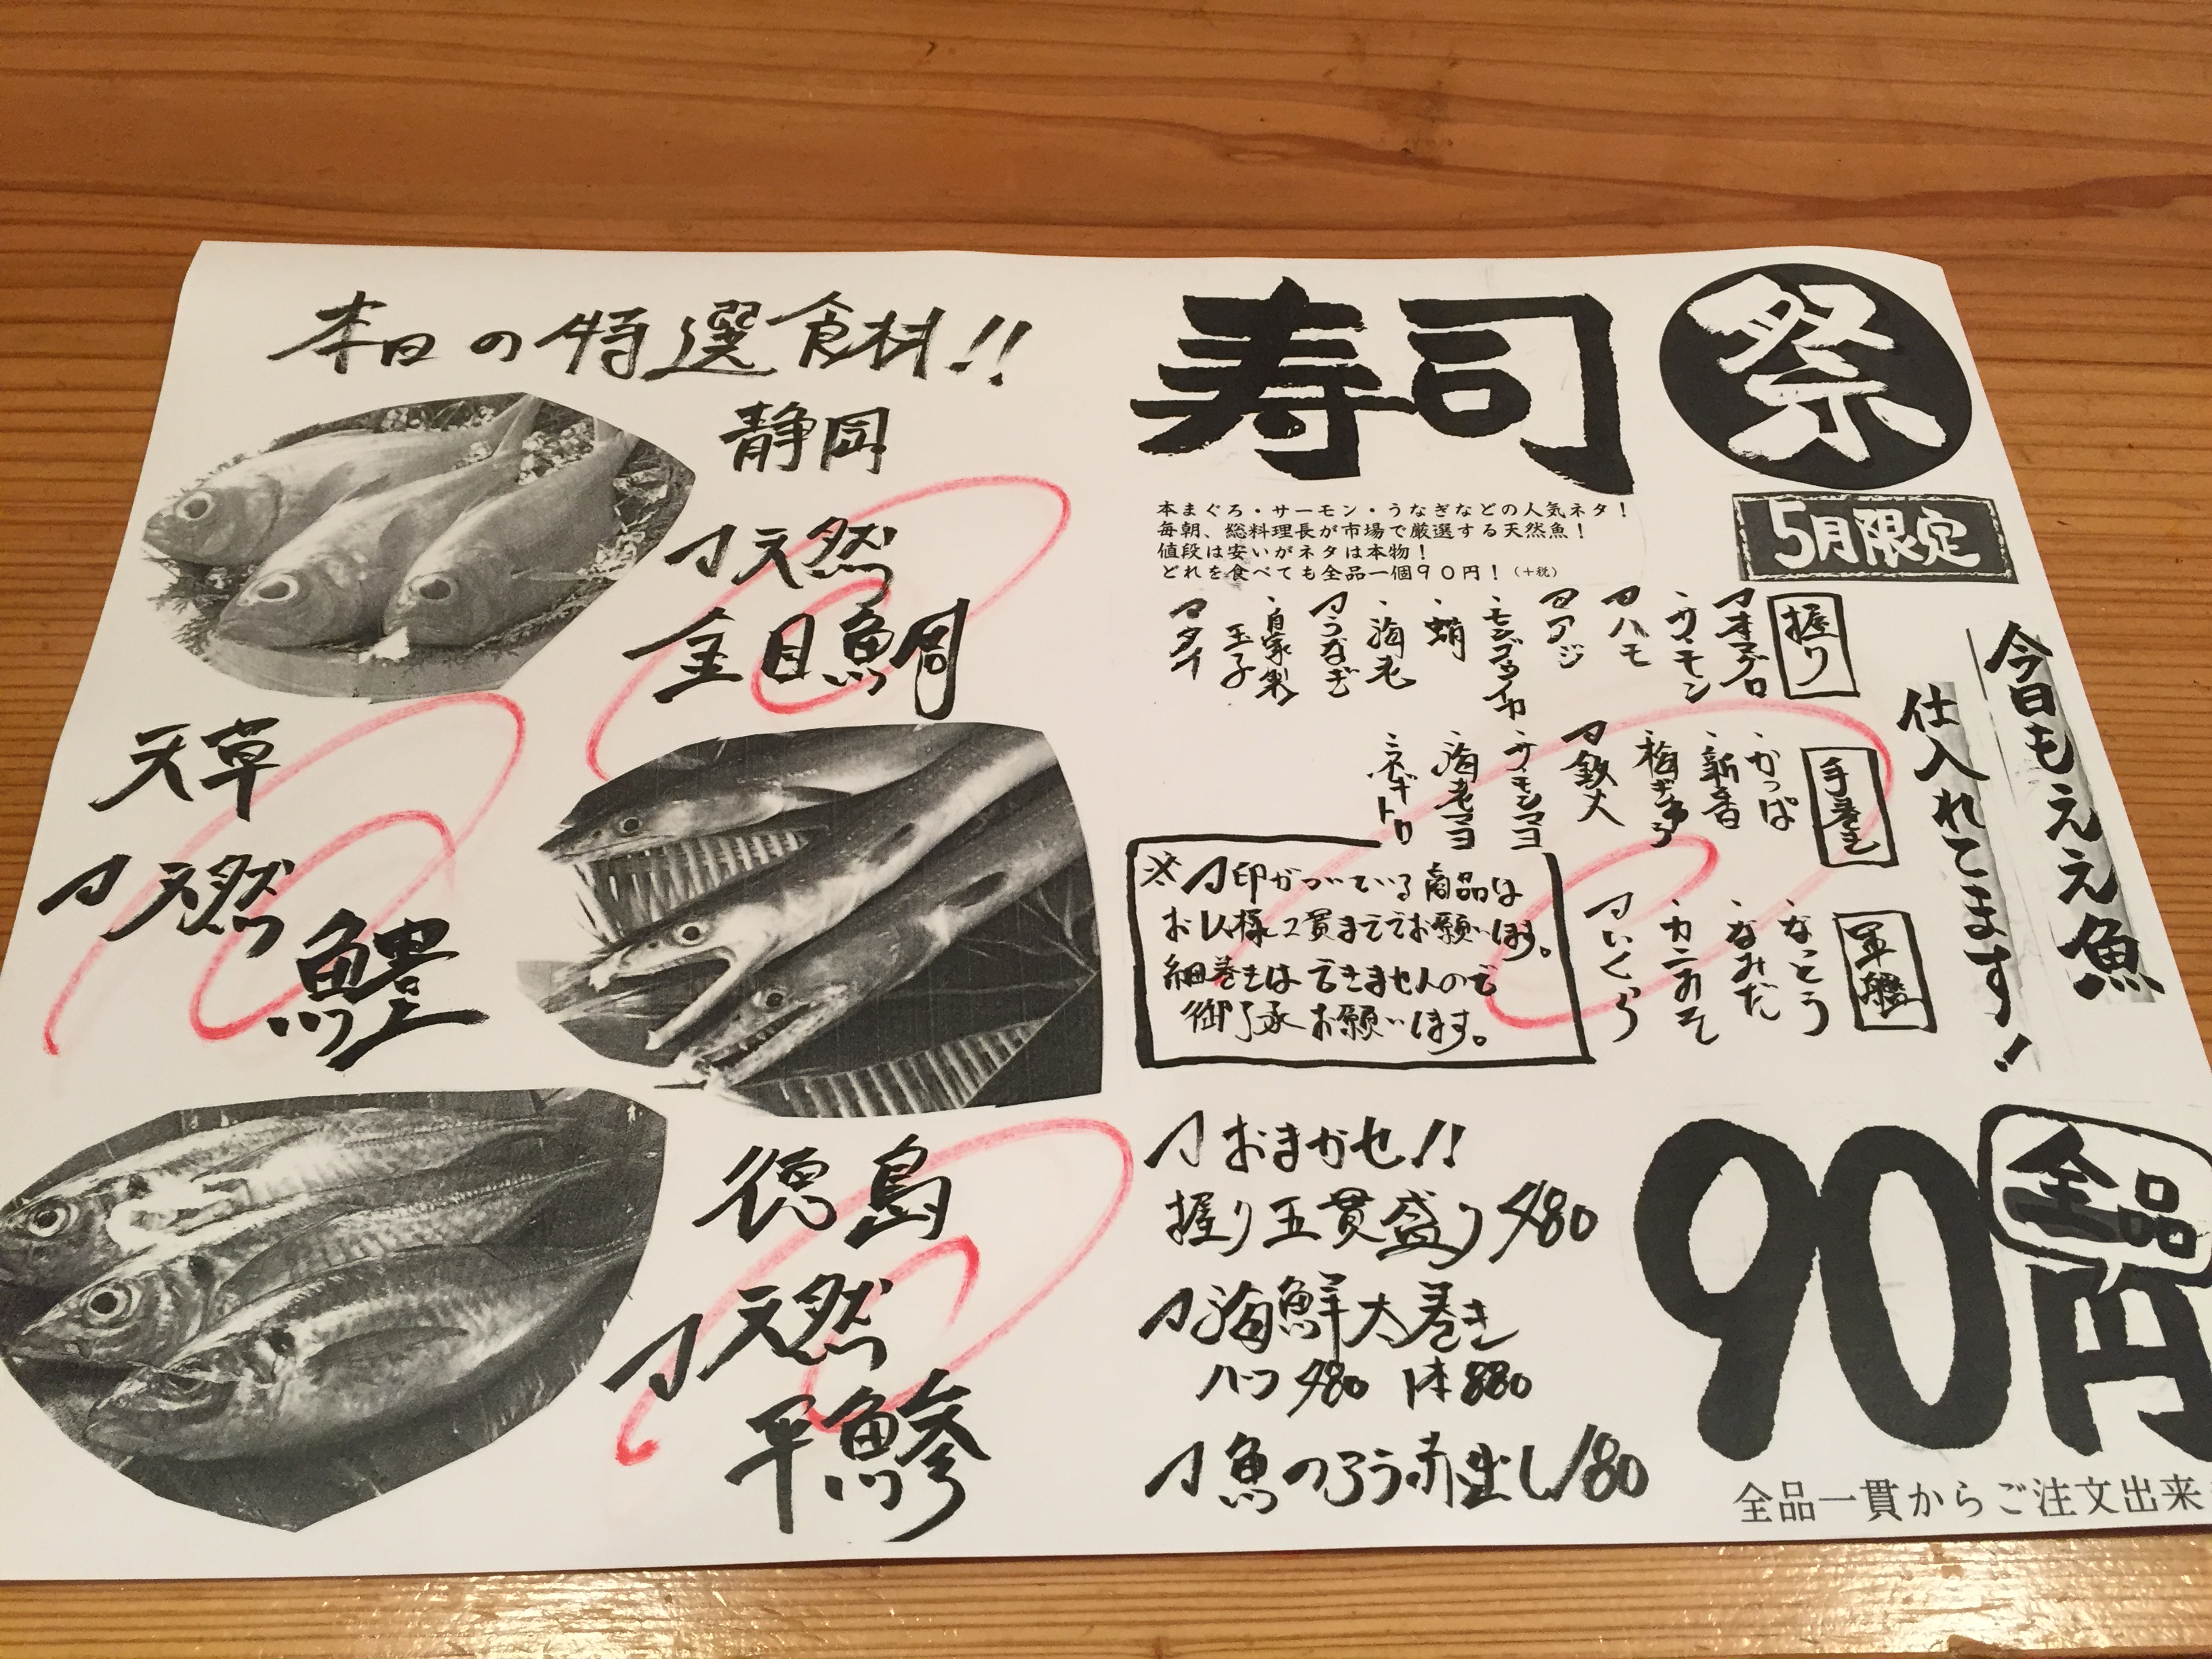 本日の特選食材!!
静岡
天然
金目鯛
天草
天然
鱧
徳島
天然
平鯵
寿司
祭
5月限定
本まぐろ・サーモン・うなぎなどの人気ネタ!
毎朝、総料理長が市場で厳選する天然魚!
値段は安いがネタは本物!
どれを食べても全品一個90円!(+税)
今日もええ魚
仕入れてます!
握り
本マグロ
サーモン
ハモ
アジ
モンゴウイカ
・蛸
・海老
うなぎ
・自家製
玉子
タイ
手巻き
・かっぱ
・新香
鉄火
・サーモンマヨ
・海老マヨ
・ネギトロ
軍艦
・なっとう
・なみだ
・カニみそ
いくら
印がついている商品は
お1人様2貫まででお願いします。
細巻きはできませんので
御了承お願いします。
おまかせ!!
握り五貫盛り480
海鮮太巻き
ハーフ480 1本880
魚のあら赤出し180
全品
90円
全品一貫からご注文出来